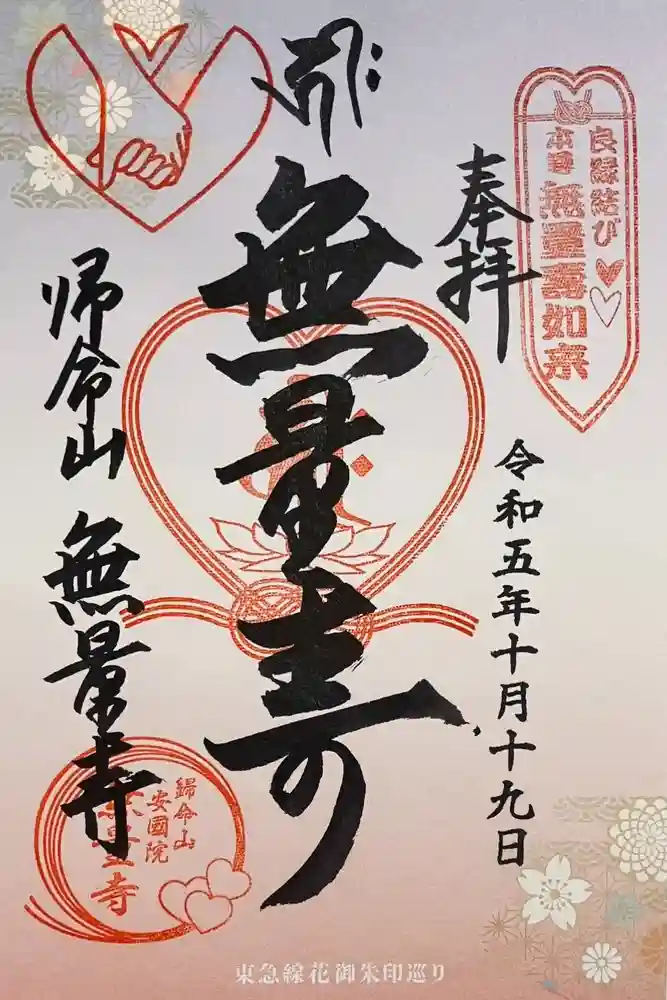 良縁結び
本尊 無量壽如来
奉拝
令和五年十月十九日
無量寿
帰命山 無量寺
歸命山
安國院
無量寺
東急線花御朱印巡り